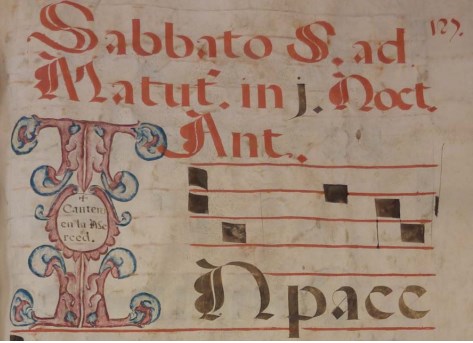 Sabbato S. ad
127.
Matut. in j. Noct.
Ant.
I
Canten
en la Me
rced.
N pace